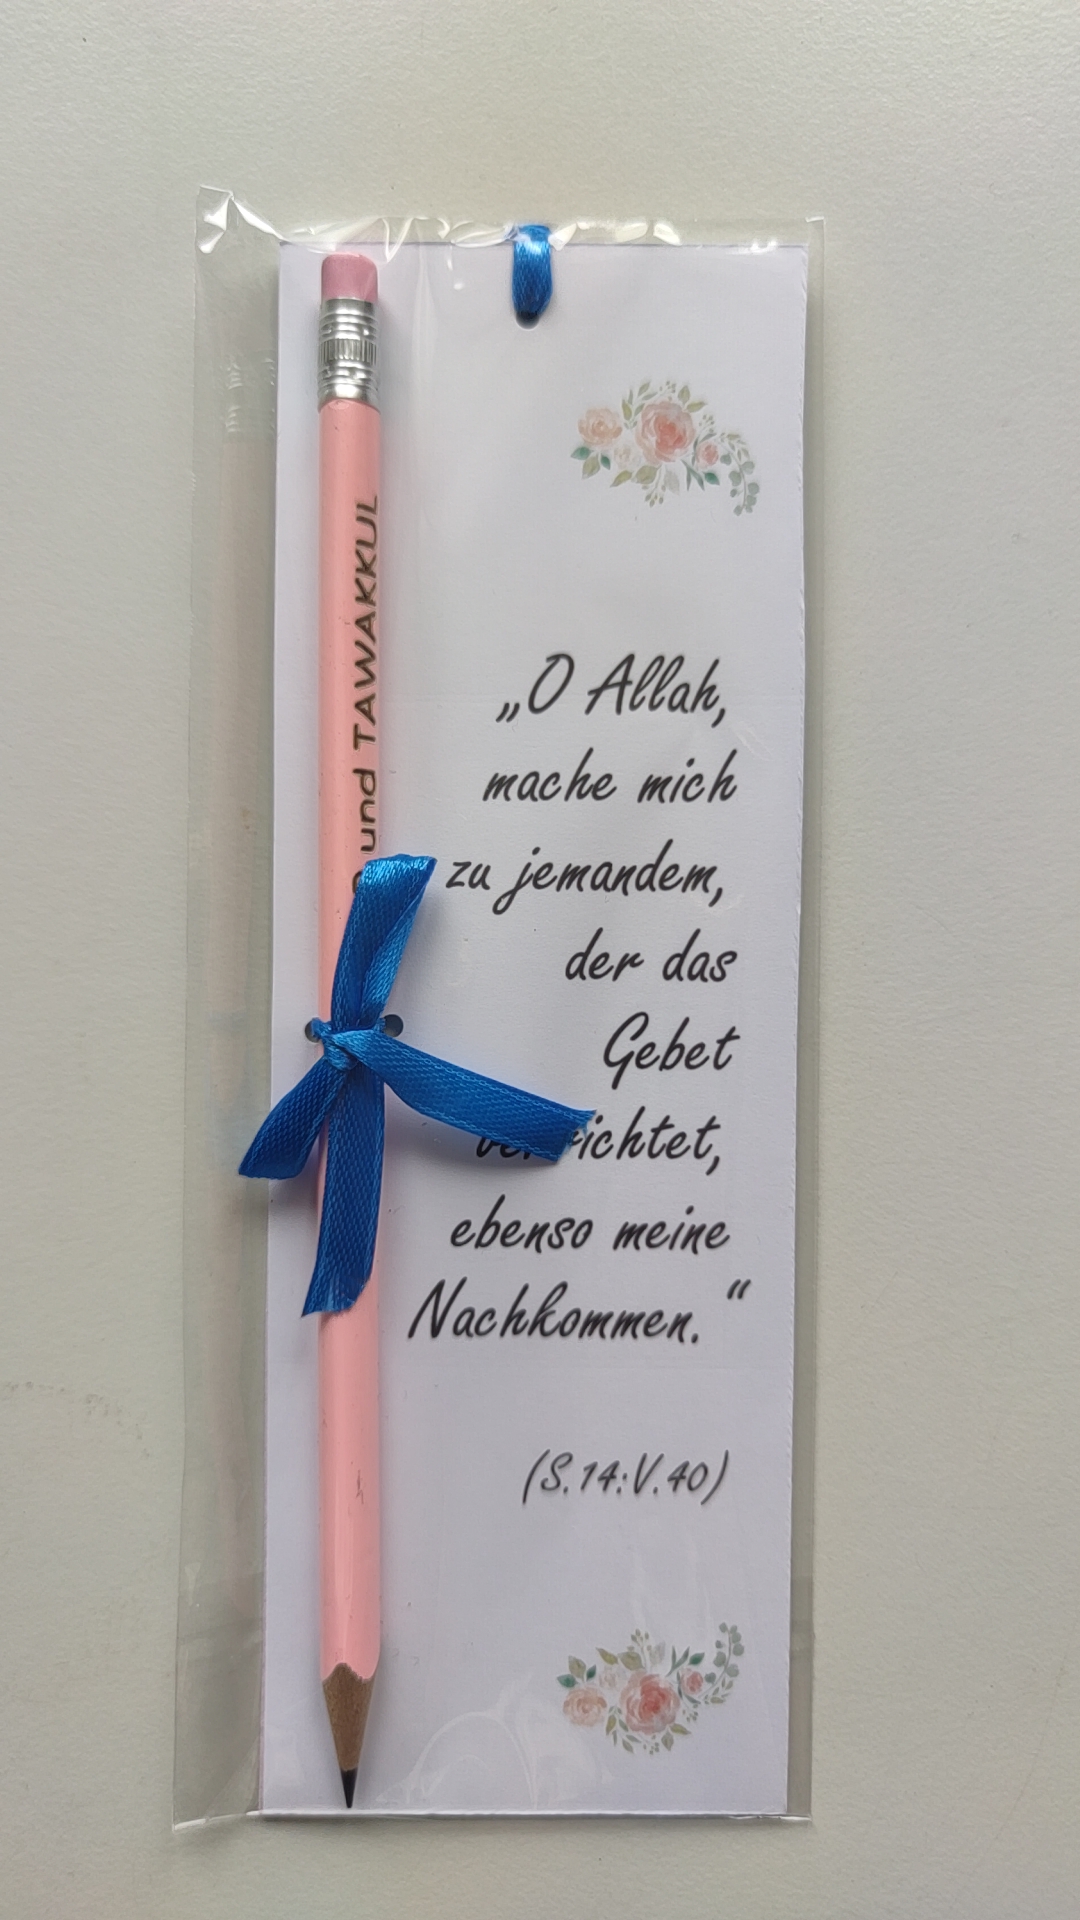 und TAWAKKUL
„O Allah,
mache mich
zu jemandem,
der das
Gebet
verrichtet,
ebenso meine
Nachkommen.“
(S.14:V.40)